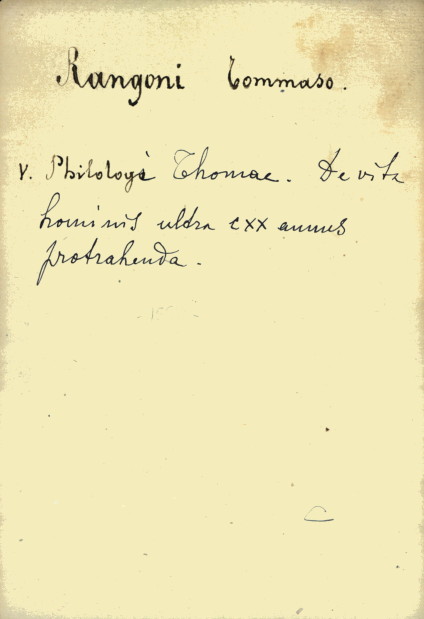 Rangoni Tommaso.
V. Philologi Thomae. De vita
hominis ultra CXX annus
protrahenda.